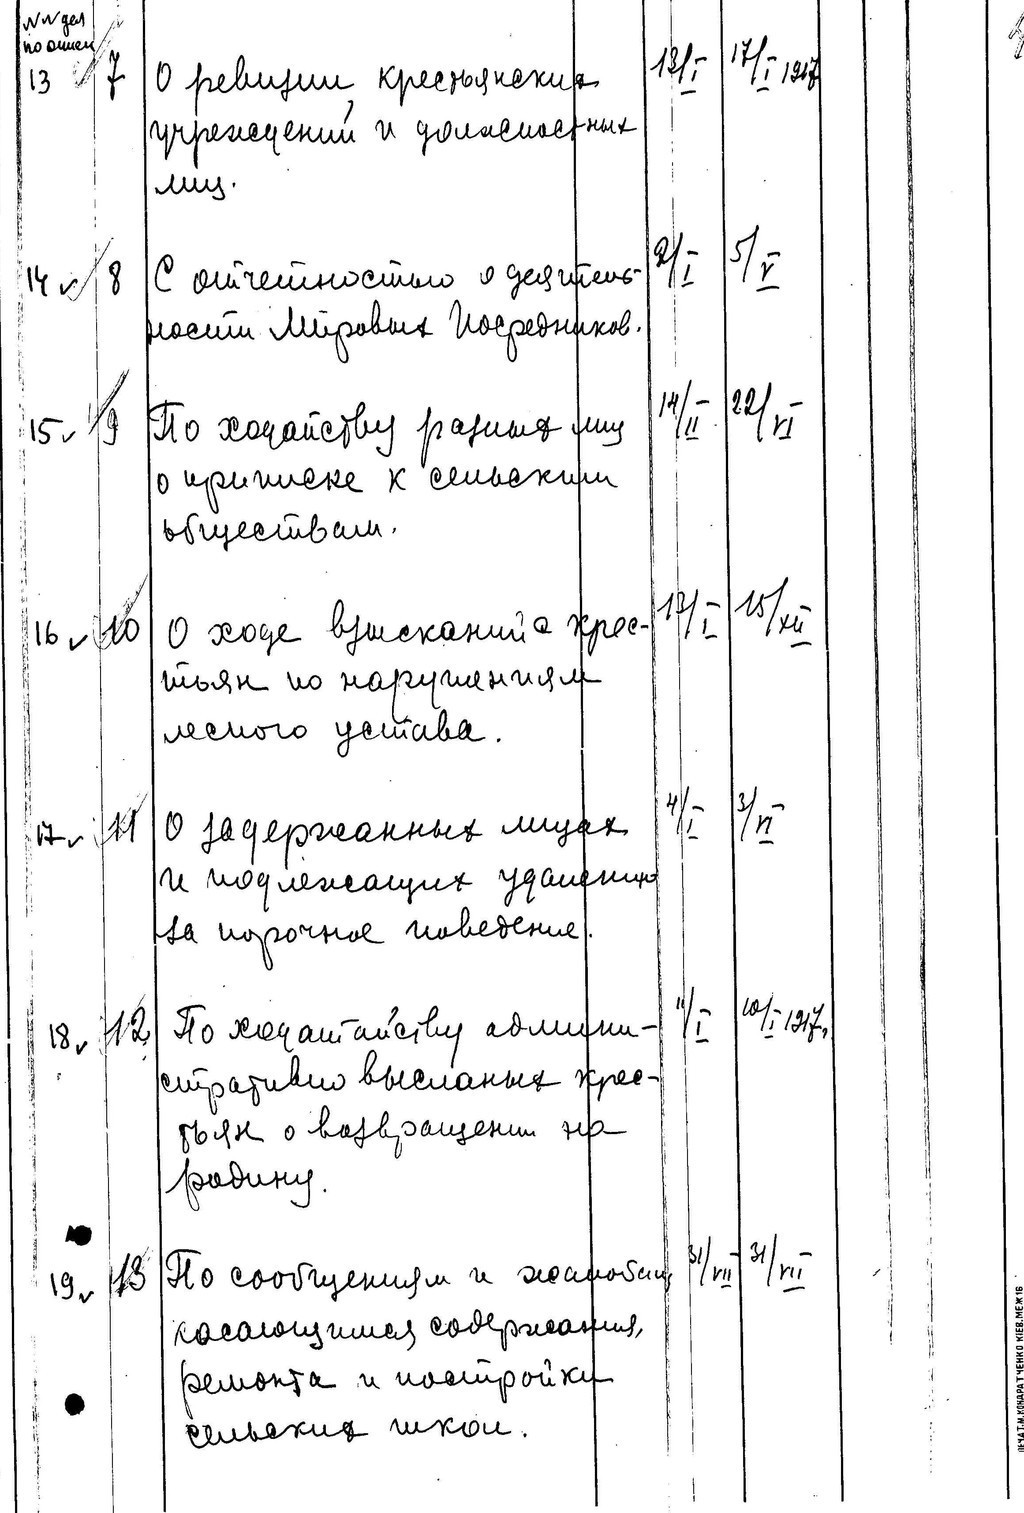 NN дел
по описи
13 7 О ревизии крестьянских 13/I 17/I 1917
учреждений и должностных
лиц.
14 8 С отчетностью о деятель- 2/I 5/V
ности Мировых Посредников.
15 9 По ходайству разных лиц 14/II 22/VI
о приписке к сельским
обществам.
16 10 О ходе взысканий с крес- 13/I 15/XII
тьян по нарушениям
лесного устава.
17 11 О задержанных лицах 4/I 3/VI
и подлежащих удалению
за порочное поведение.
18 12 По ходатайству админи- 11/I 10/I 1917,
стративно высланых крес-
тьян о возвращении на
родину.
19 13 По сообщениям и жалобам, 31/VII 31/VII
касающимся содержания,
ремонта и постройки
сельских школ.
ПЕЧАТ. М. КОНДРАТЧЕНКО КІЕВ. МЕЖ 16